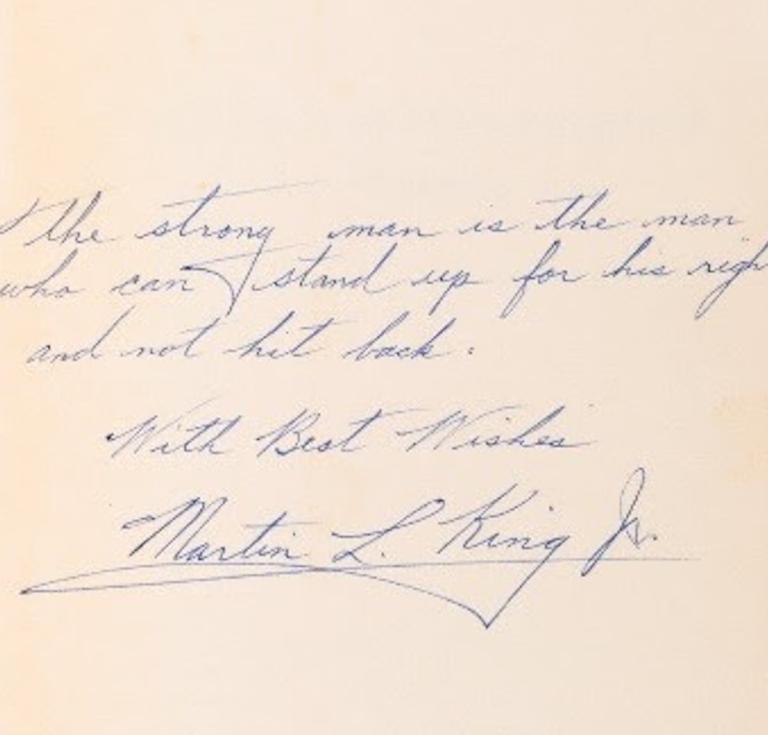 the strong man is the man
who can stand up for his righ
and not hit back.
With Best Wishes
Martin L. King Jr.